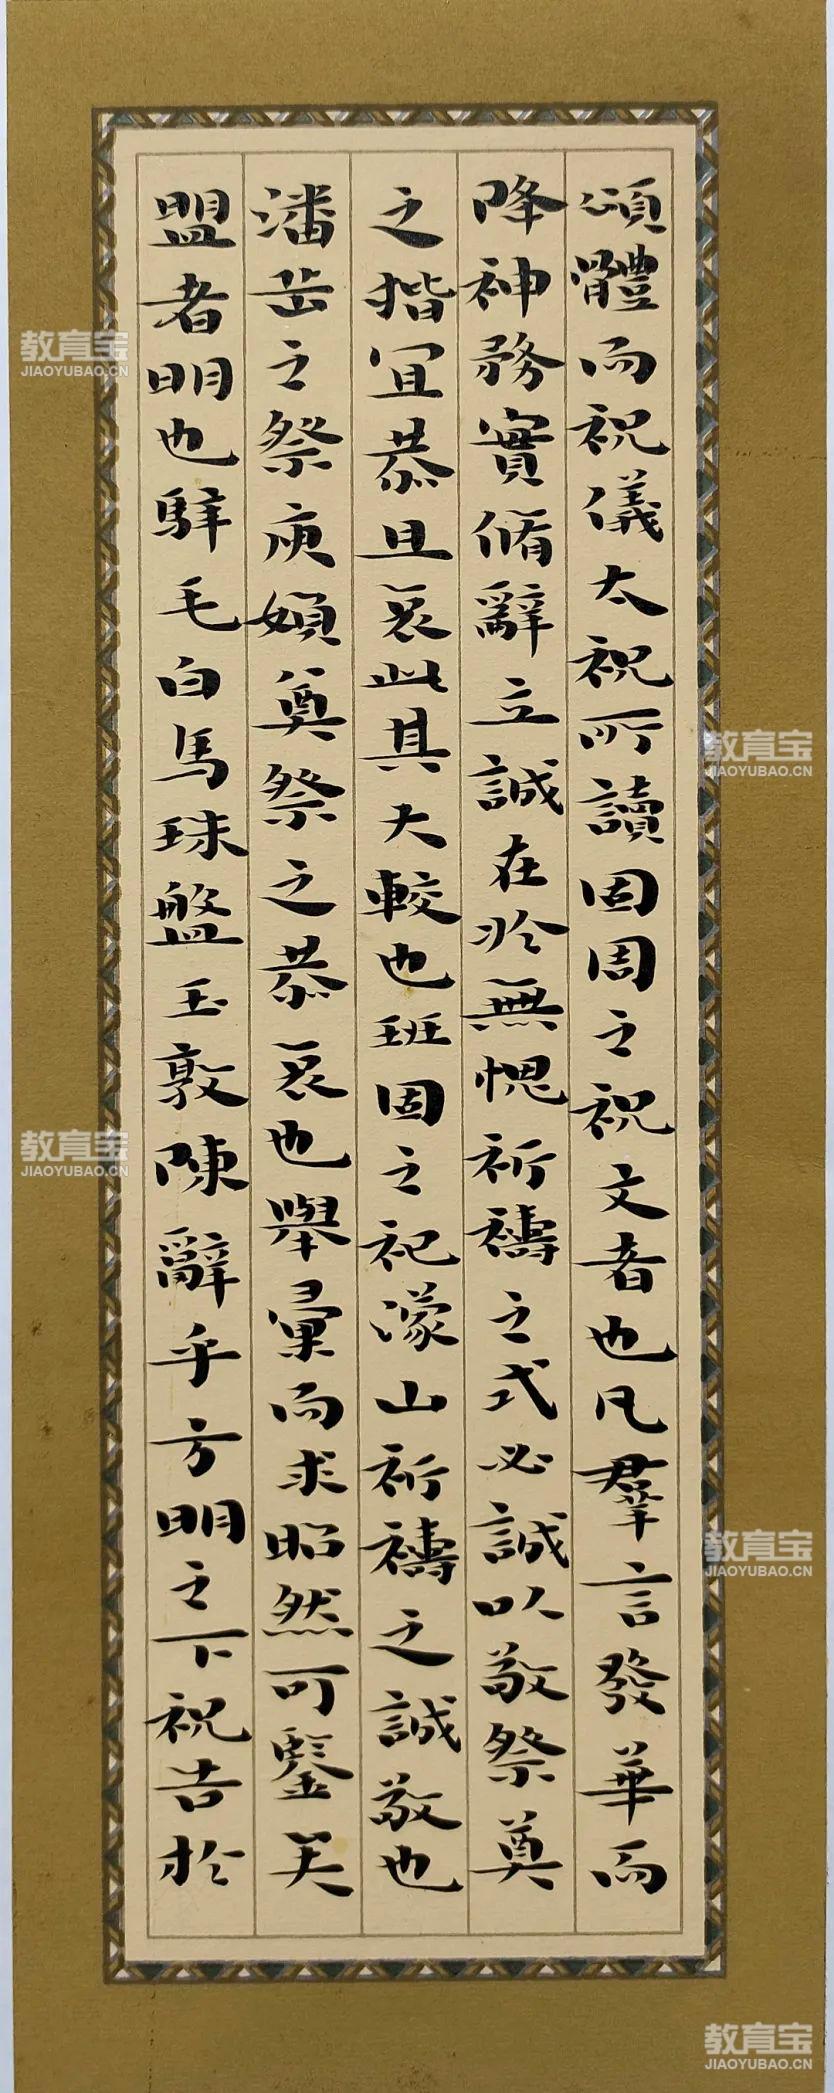 頌體而祝儀太祝所讀固周之祝文者也凡羣言發華而
降神務實脩辭立誠在於無愧祈禱之式必誠以敬祭奠
之揩宜恭且哀此其大較也班固之祀濛山祈禱之誠敬也
潘岳之祭庾嬪奠祭之恭哀也舉彙而求昭然可鑒矣
盟者明也騂毛白馬珠盤玉敦陳辭乎方明之下祝告於
教育宝
JIAOYUBAO.CN
教育宝
JIAOYUBAO.CN
教育宝
JIAOYUBAO.CN
教育宝
JIAOYUBAO.CN
教育宝
JIAOYUBAO.CN